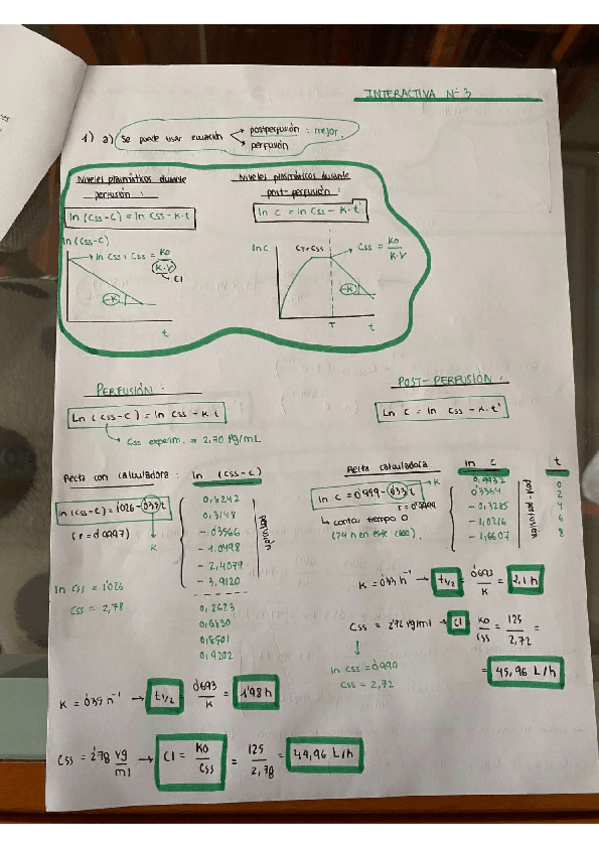 INTERACTIVA Nº 3
1) a) Se puede usar ecuación
postperfusión : mejor.
perfusión
Niveles plasmáticos durante
perfusión :
ln (Css-C) = ln Css - K.t
ln (Css-C)
ln Css ; Css = Ko
K.V
Cl
-K
t
Niveles plasmáticos durante
post-perfusión :
ln C = ln Css - K.t'
ln C
CT=Css
Css = Ko
K.V
-K
T
t
PERFUSIÓN :
Ln (Css-C) = ln Css - K.t
Css experim. = 2,70 μg/mL
Recta con calculadora :
ln (Css-C)
K
0,8242
0,3148
-1,0498
-2,4079
-3,9120
0,2623
0,8501
0,9202
perfusión
ln Css = 1'026
Css = 2,78
t1/2
0'693
K
= 1'98 h
Css = 2'78 μg
ml
Cl = Ko
Css
= 125
2,78
= 44,96 L/h
POST-PERFUSIÓN :
Ln C = ln Css - K.t'
Recta calculadora
ln C = 0'999 - 0'33t
K
contar tiempo 0
(24 h en este caso).
ln C
-1,0216
-1,6607
post-perfusión
t
0
2
4
6
8
K = 0'33 h⁻¹
t1/2
= 0'693
K
= 2,1 h
Css = 2'72 μg/ml
Cl
Ko
Css
= 125
2,72
=
ln Css = 0'999
Css = 2,72
= 45,96 L/h